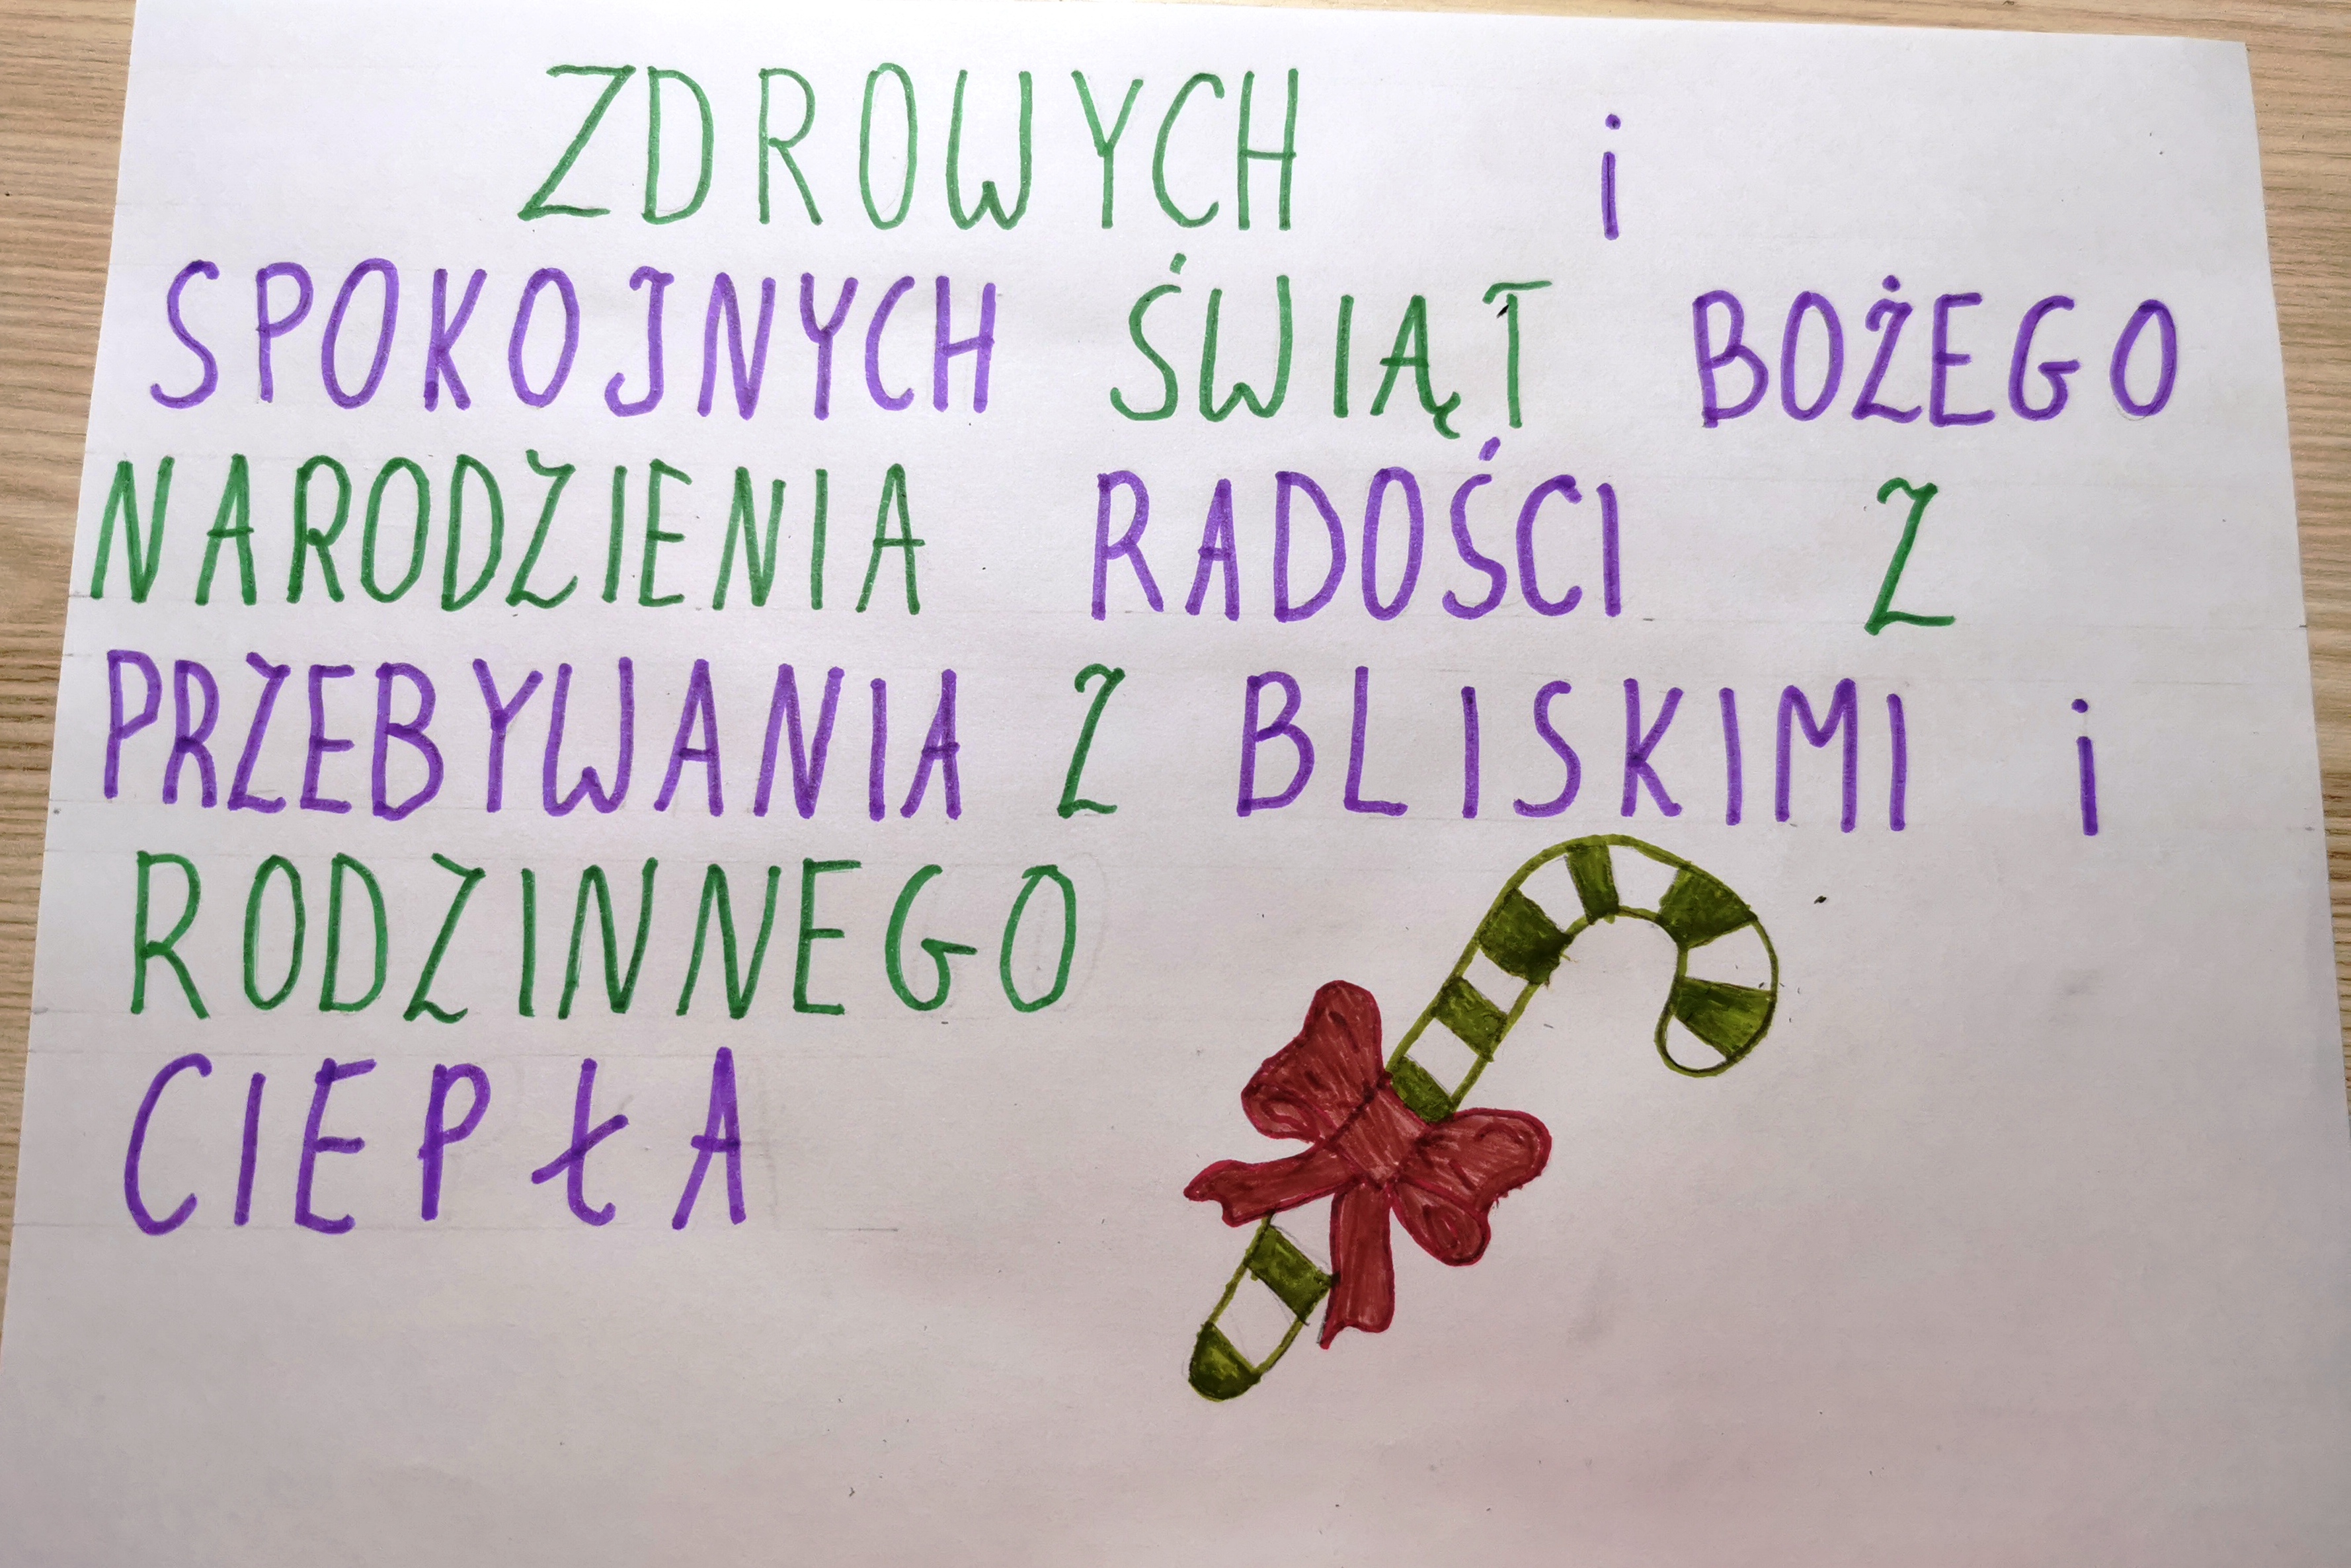 ZDROWYCH i
SPOKOJNYCH ŚWIĄT BOŻEGO
NARODZIENIA RADOŚCI Z
PRZEBYWANIA Z BLISKIMI i
RODZINNEGO
CIEPŁA